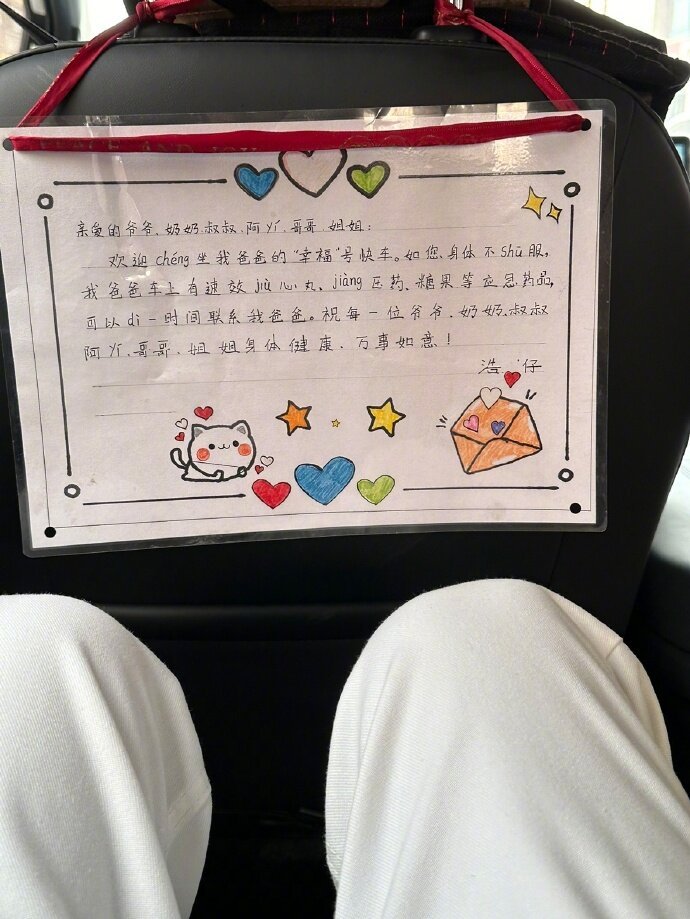 亲爱的爷爷、奶奶、叔叔、阿丫、哥哥、姐姐:
欢迎chéng坐我爸爸的“幸福”号快车。如您、身体不shū服,
我爸爸车上有速效jiù心丸、jiàng压药、糖果等应急药品,
可以dì一时间联系我爸爸。祝每一位爷爷、奶奶、叔叔
阿丫、哥哥、姐姐身体健康、万事如意!
浩 仔